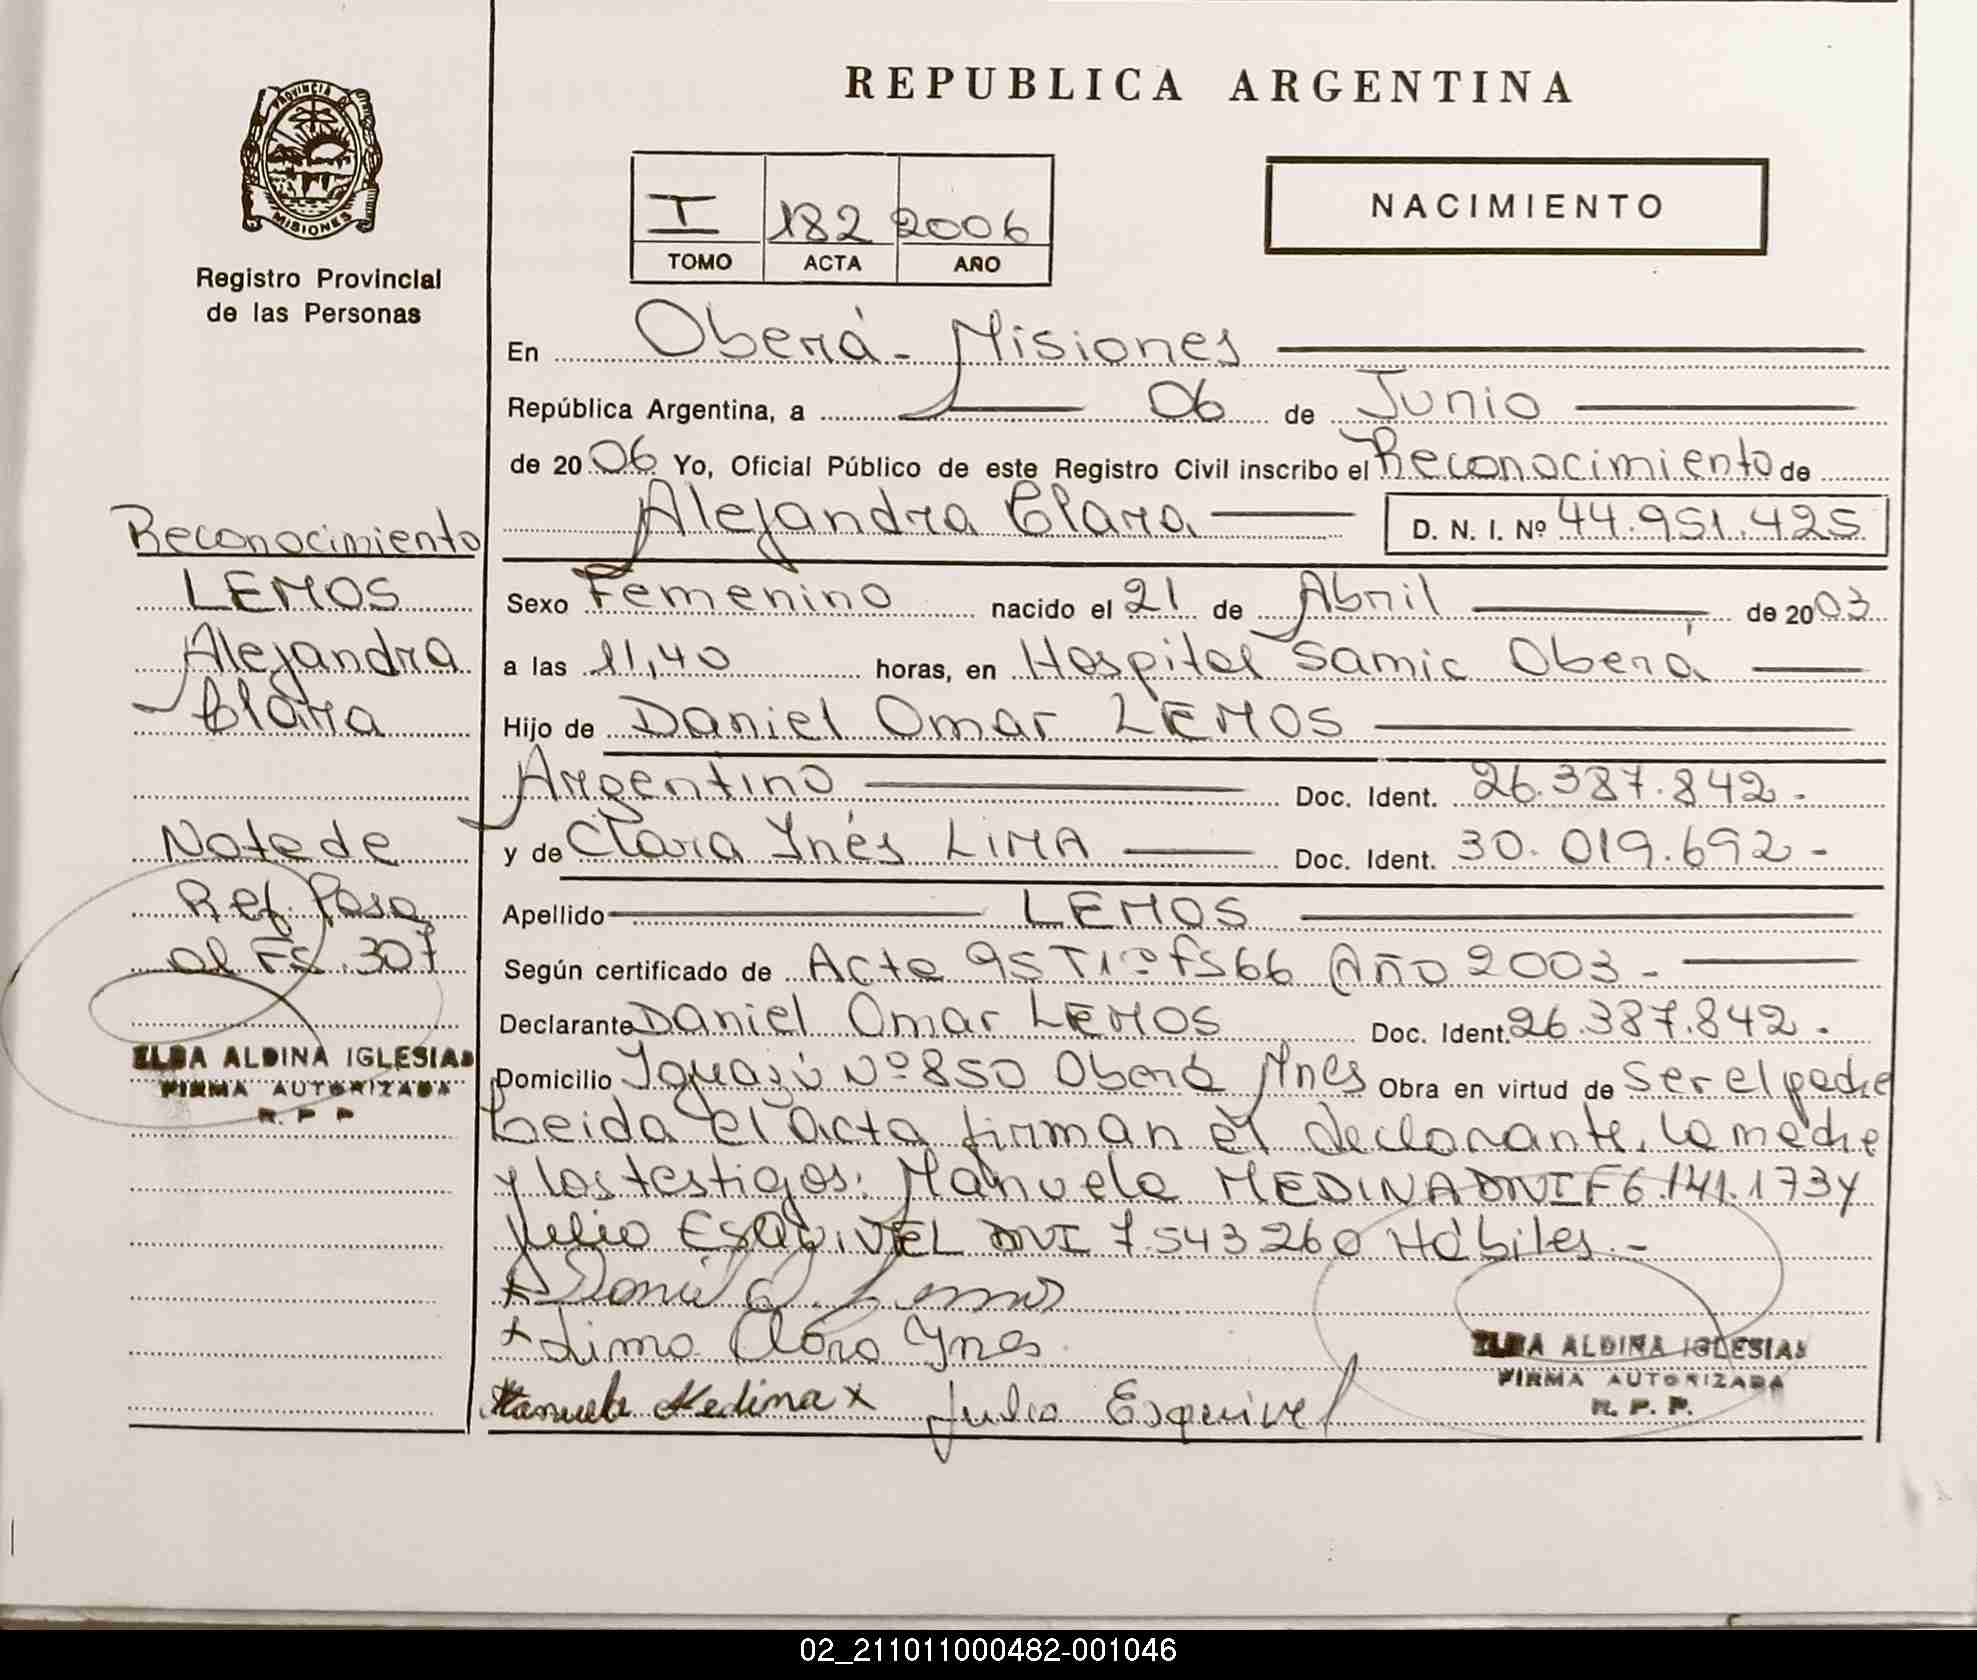 PROVINCIA DE
MISIONES
Registro Provincial
de las Personas
REPUBLICA ARGENTINA
I 182 2006
TOMO ACTA AÑO
NACIMIENTO
En Oberá - Misiones
República Argentina, a 06 de Junio
de 2006 Yo, Oficial Público de este Registro Civil inscribo el Reconocimiento de
Alejandra Clara D. N. I. Nº 44.951.425
Sexo Femenino nacido el 21 de Abril de 2003
a las 11,40 horas, en Hospital Samic Oberá
Hijo de Daniel Omar LEMOS
Argentino Doc. Ident. 26.387.842.-
y de Clara Inés LIMA Doc. Ident. 30.019.692-
Apellido LEMOS
Según certificado de Acta 95 T1º fs 66 Año 2003-
Declarante Daniel Omar LEMOS Doc. Ident. 26.387.842.
Domicilio Iguazú Nº 850 Oberá Mnes Obra en virtud de ser el padre
Leida el acta firman el declarante, la madre
y los testigos: Manuela MEDINA DNI F 6.141.173 y
Julio ESQUIVEL DNI 7.543.260 Hábiles.-
x Daniel O. Lemos
x Lima Clara Ynes
Manuela Medina x Julio Esquivel
ELBA ALDINA IGLESIAS
FIRMA AUTORIZADA
R. P. P.
Reconocimiento
LEMOS
Alejandra
Clara
Nota de
Ref. Pasa
al Fs. 307
ELBA ALDINA IGLESIAS
FIRMA AUTORIZADA
R. P. P
02_211011000482-001046